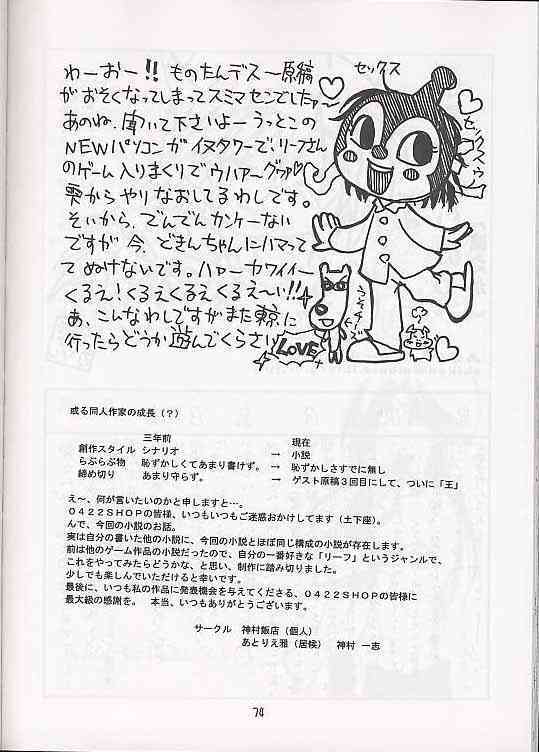 わーおー!! ものたんデス〜原稿
がおそくなってしまってスミマセンでしたァ〜
あのね、聞いて下さいよーうっとこの
NEWパソコンがイヌタワーで、リーフさん
のゲーム入りまくりでウハァ〜グゥァ♡
雫からやりなおしてるわしです。
そいから、でんでんカンケーない
ですが今、どきんちゃんにハマって
てぬけないです。ハァーカワイイー
くるえ!くるえくるえくるえ〜い!!
あ、こんなわしですがまた東京に
行ったらどうか遊んでくらさい
セックス
セックスゥ
LOVE
或る同人作家の成長(?)
三年前 現在
創作スタイル シナリオ → 小説
らぶらぶ物 恥ずかしくてあまり書けず。 → 恥ずかしさすでに無し
締め切り あまり守らず。 → ゲスト原稿3回目にして、ついに「王」
え〜、何が言いたいのかと申しますと…。
0422SHOPの皆様、いつもいつもご迷惑おかけしてます(土下座)。
んで、今回の小説のお話。
実は自分の書いた他の小説に、今回の小説とほぼ同じ構成の小説が存在します。
前は他のゲーム作品の小説だったので、自分の一番好きな「リーフ」というジャンルで、
これをやってみたらどうかな、と思い、制作に踏み切りました。
少しでも楽しんでいただけると幸いです。
最後に、いつも私の作品に発表機会を与えてくださる、0422SHOPの皆様に
最大級の感謝を。 本当、いつもありがとうございます。
サークル 神村飯店(個人)
あとりえ雅(居候) 神村 一志
78